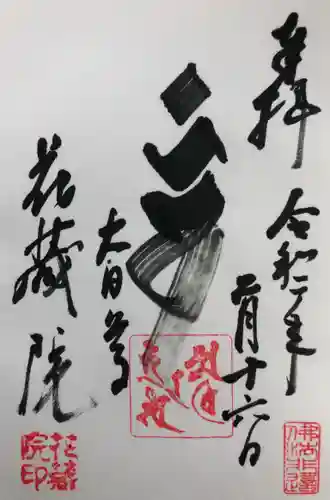 奉拝
令和二年
二月十六日
大日尊
花蔵院
花蔵
院印